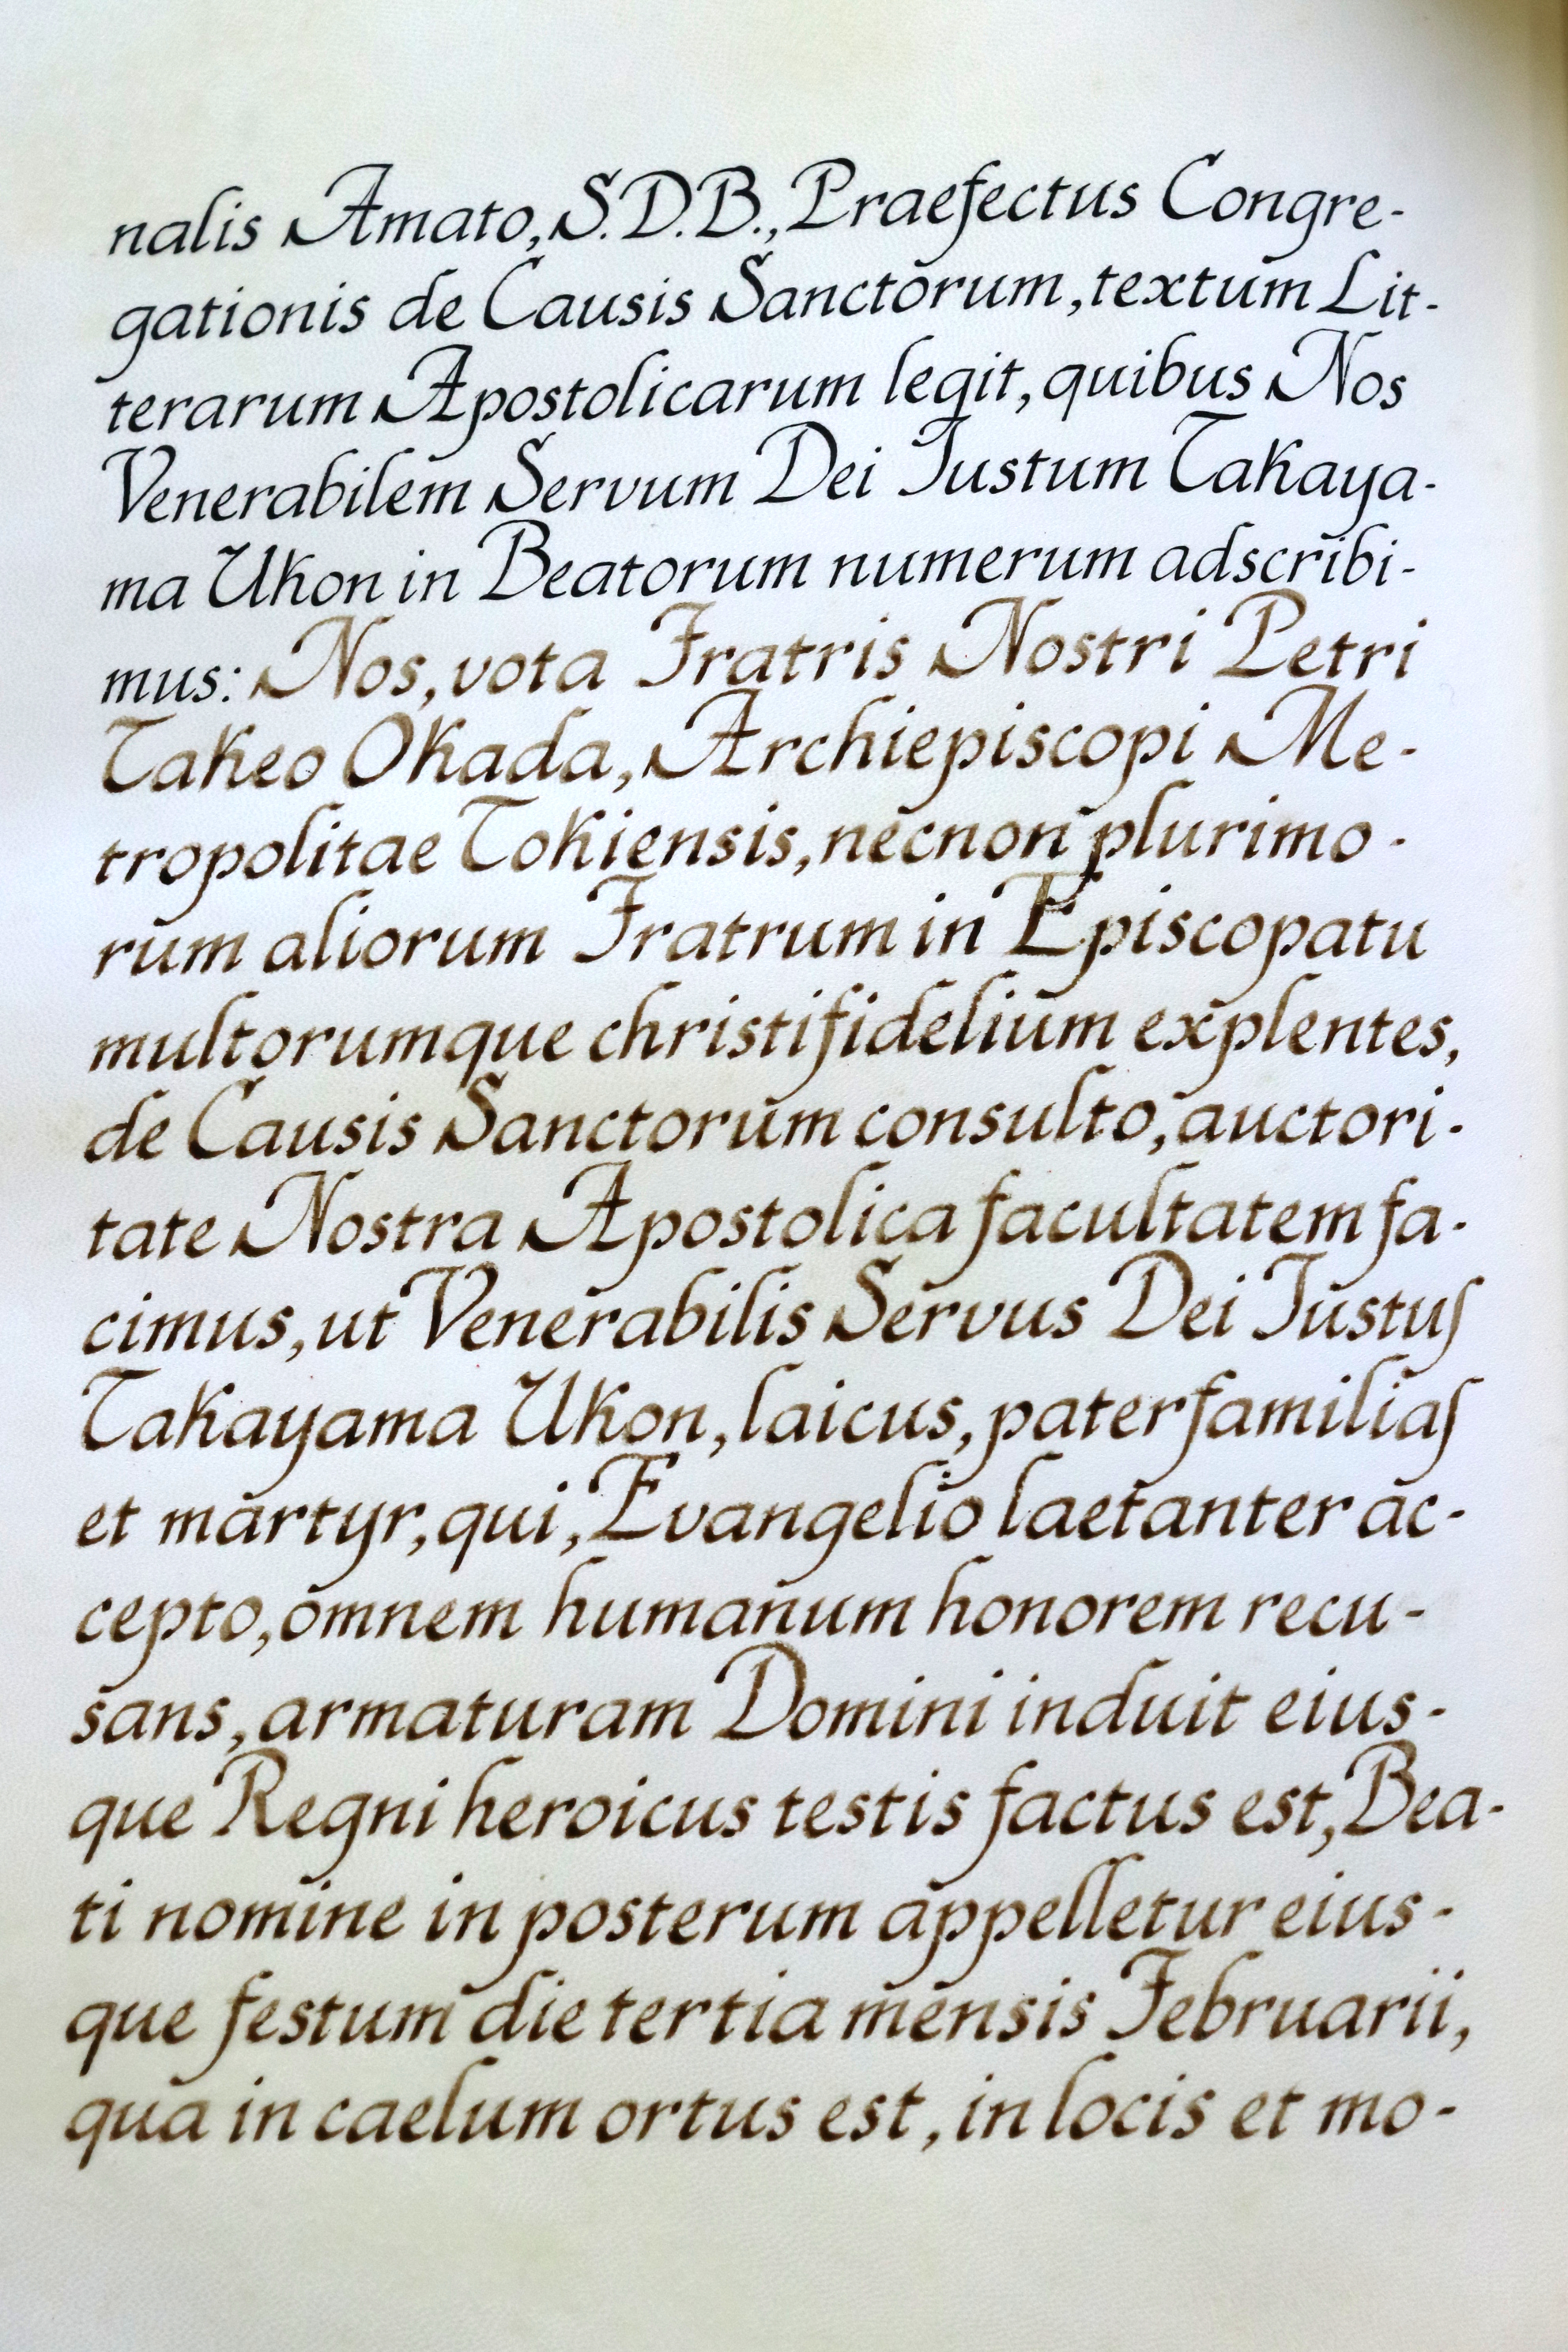 nalis Amato, S.D.B., Praefectus Congre-
gationis de Causis Sanctorum, textum Lit-
terarum Apostolicarum legit, quibus Nos
Venerabilem Servum Dei Iustum Takaya-
ma Ukon in Beatorum numerum adscribi-
mus: Nos, vota Fratris Nostri Petri
Takeo Okada, Archiepiscopi Me-
tropolitae Tokiensis, necnon plurimo-
rum aliorum Fratrum in Episcopatu
multorumque christifidelium explentes,
de Causis Sanctorum consulto, auctori-
tate Nostra Apostolica facultatem fa-
cimus, ut Venerabilis Servus Dei Iustus
Takayama Ukon, laicus, paterfamilias
et martyr, qui, Evangelio laetanter ac-
cepto, omnem humanum honorem recu-
sans, armaturam Domini induit eius-
que Regni heroicus testis factus est, Bea-
ti nomine in posterum appelletur eius-
que festum die tertia mensis Februarii,
qua in caelum ortus est, in locis et mo-